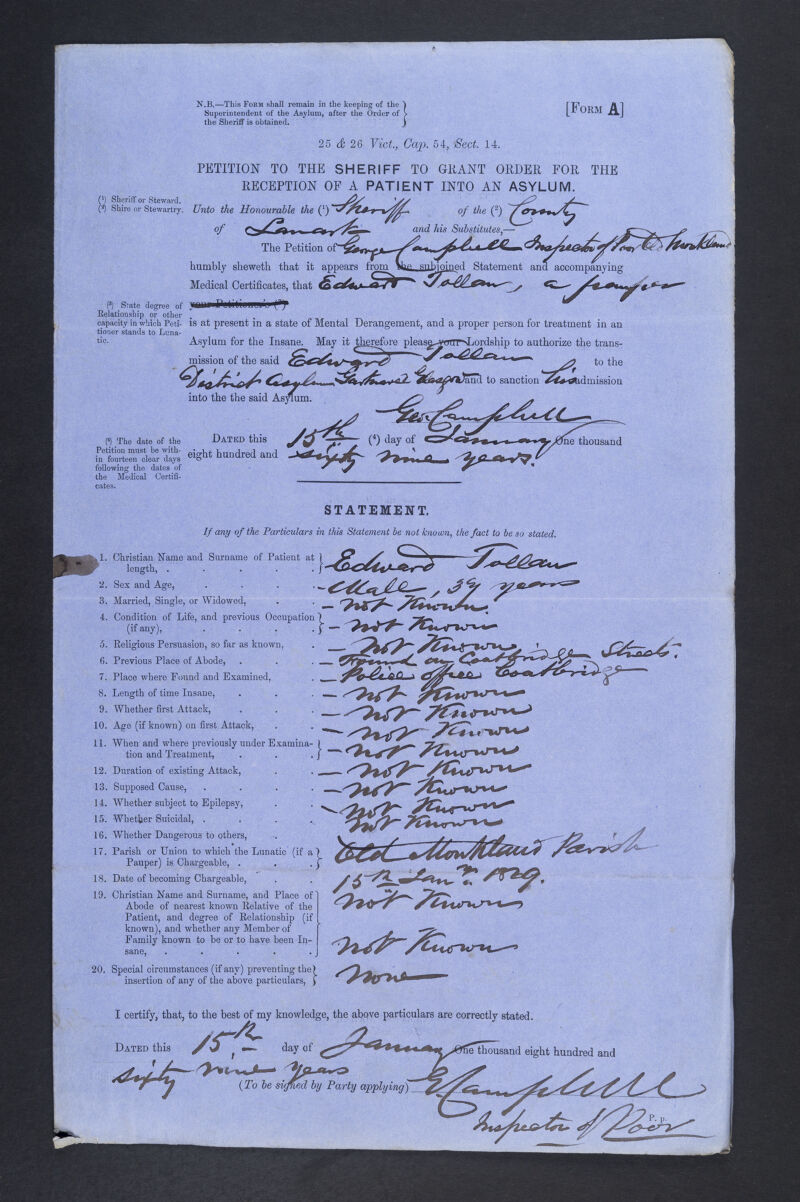 N.B.—This Form shall remain in the keeping of the
Superintendent of the Asylum, after the Order of
the Sheriff is obtained.
[Form A]
25 & 26 Vict., Cap. 54, Sect. 14.
PETITION TO THE SHERIFF TO GRANT ORDER FOR THE
RECEPTION OF A PATIENT INTO AN ASYLUM.
(1) Sheriff or Steward.
(2) Shire or Stewartry.
Unto the Honourable the (1) Sheriff of the (2) County
of Lanark and his Substitutes,—
The Petition of George Campbell Inspector of Poor Old Monkland
humbly sheweth that it appears from the subjoined Statement and accompanying
Medical Certificates, that Edward Tollan, a pauper
(3) State degree of
Relationship or other
capacity in which Peti-
tioner stands to Luna-
tic.
your Petitioner's (3)
is at present in a state of Mental Derangement, and a proper person for treatment in an
Asylum for the Insane. May it therefore please your Lordship to authorize the trans-
mission of the said Edward Tollan to the
District Asylum Gartnavel Glasgow and to sanction his admission
into the the said Asylum.
Geo. Campbell
(4) The date of the
Petition must be with-
in fourteen clear days
following the dates of
the Medical Certifi-
cates.
Dated this 15th (4) day of January One thousand
eight hundred and sixty nine years.
STATEMENT.
If any of the Particulars in this Statement be not known, the fact to be so stated.
1. Christian Name and Surname of Patient at
length, . . . . . . Edward Tollan
2. Sex and Age, . . . . - Male, 39 years
3. Married, Single, or Widowed, . . - Not Known.
4. Condition of Life, and previous Occupation
(if any), . . . . . - Not Known
5. Religious Persuasion, so far as known, . - Not Known
6. Previous Place of Abode, . . . - Found on Coatbridge Streets.
7. Place where Found and Examined, . - Police office Coatbridge
8. Length of time Insane, . . . - Not Known
9. Whether first Attack, . . . - Not Known
10. Age (if known) on first Attack, . . - Not Known
11. When and where previously under Examina-
tion and Treatment, . . . - Not Known
12. Duration of existing Attack, . . - Not Known
13. Supposed Cause, . . . . - Not Known
14. Whether subject to Epilepsy, . . - Not Known
15. Whether Suicidal, . . . . Not Known
16. Whether Dangerous to others, .
17. Parish or Union to which the Lunatic (if a
Pauper) is Chargeable, . . . Old Monkland Parish
18. Date of becoming Chargeable, . . 15th Jany. 1869.
19. Christian Name and Surname, and Place of
Abode of nearest known Relative of the
Patient, and degree of Relationship (if
known), and whether any Member of
Family known to be or to have been In-
sane, . . . . . .
Not Known
Not Known
20. Special circumstances (if any) preventing the
insertion of any of the above particulars,
None
I certify, that, to the best of my knowledge, the above particulars are correctly stated.
Dated this 15th day of January One thousand eight hundred and
sixty nine years
(To be signed by Party applying) G. Campbell
Inspector of Poor
P. p.